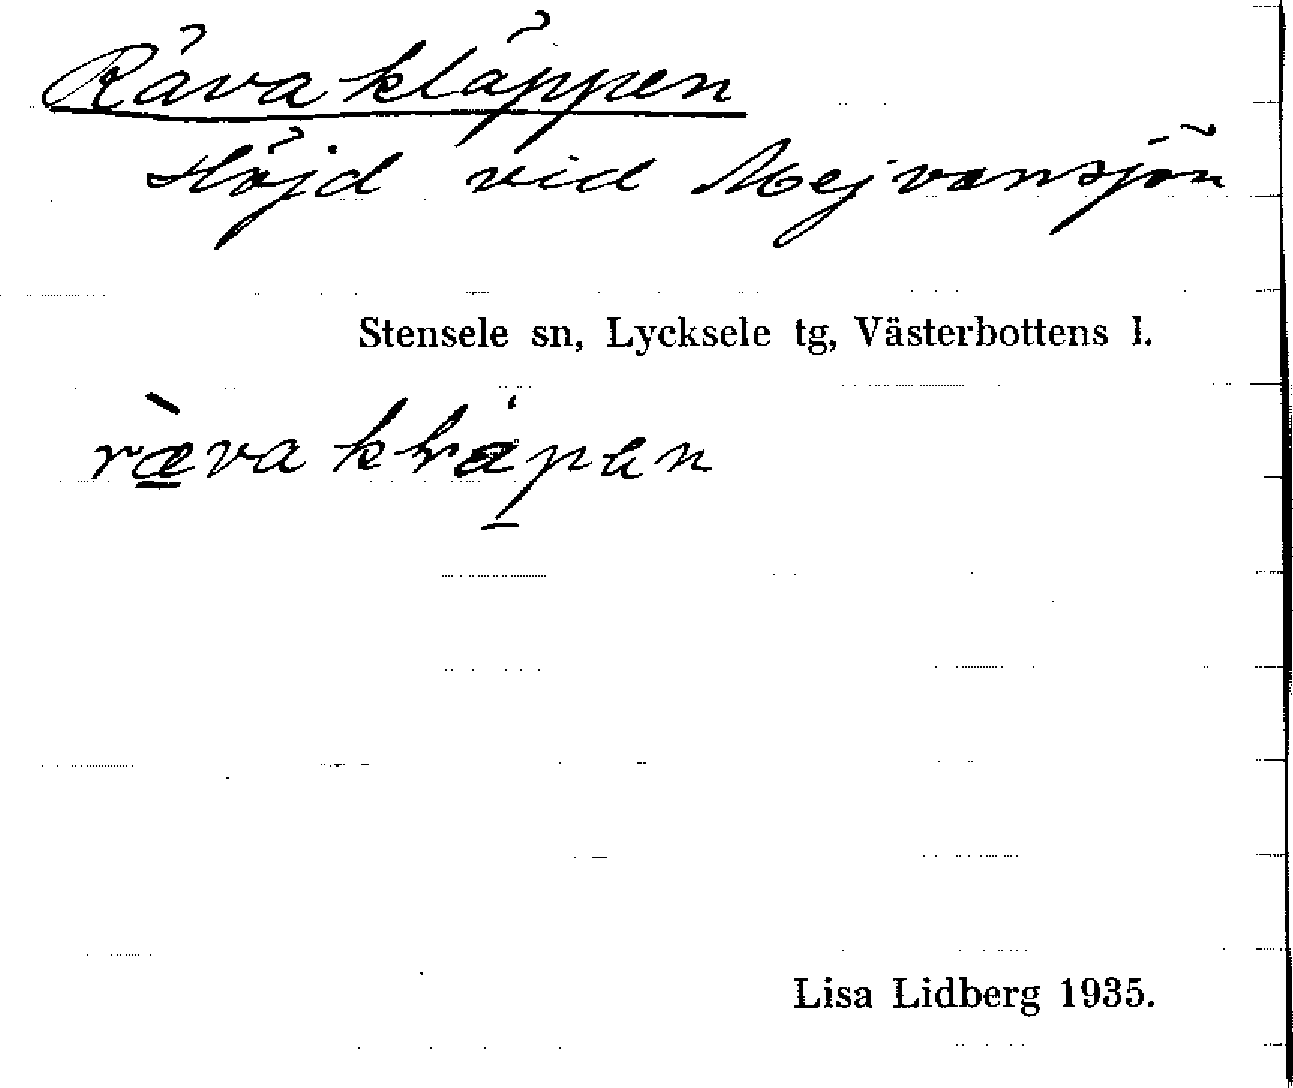 Rävakläppen
Höjd vid Mejvansjön
Stensele sn, Lycksele tg, Västerbottens l.
Lisa Lidberg 1935.